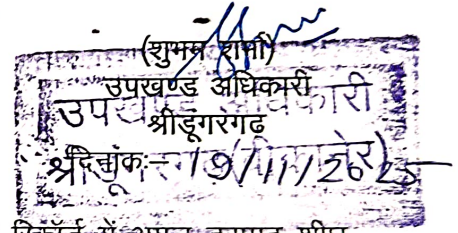 (शुभम शर्मा)
उपखण्ड अधिकारी
उपखण्ड अधिकारी
श्रीडूंगरगढ़
श्रीडूंगरगढ़ (बीकानेर)
दिनांक:- 19/11/2025